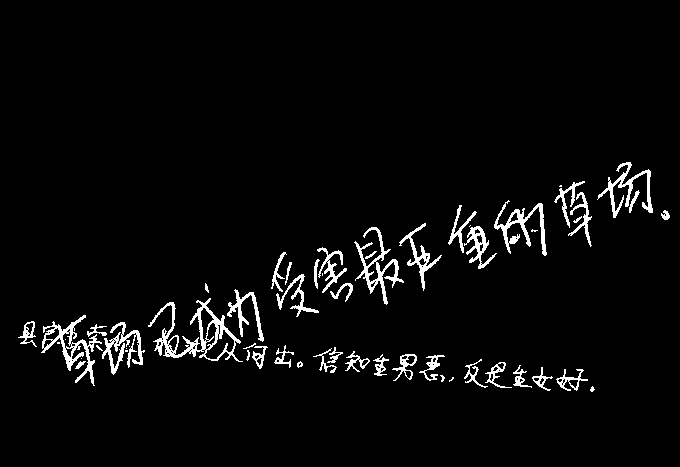 草场已成为受害最严重的草场。
县官急索租税从何出。信知生男恶,反是生女好.